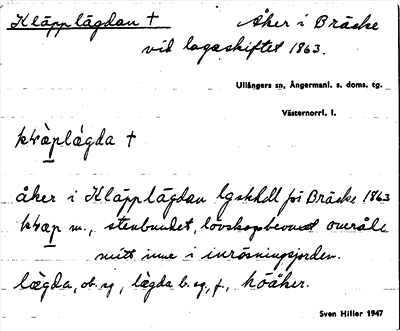 Kläpplägdan † Åker i Bräcke
vid lagaskiftet 1863.
Ullångers sn, Ångermanl. s. doms. tg.
Västernorrl. l.
åker i Kläpplägdan lgskhdl för Bräcke 1863
m., stenbundet, lövskogbevuxet område
mitt inne i inrösningsjorden.
lægda, ob. sg., lægda b. sg., f.,
Sven Hiller 1947